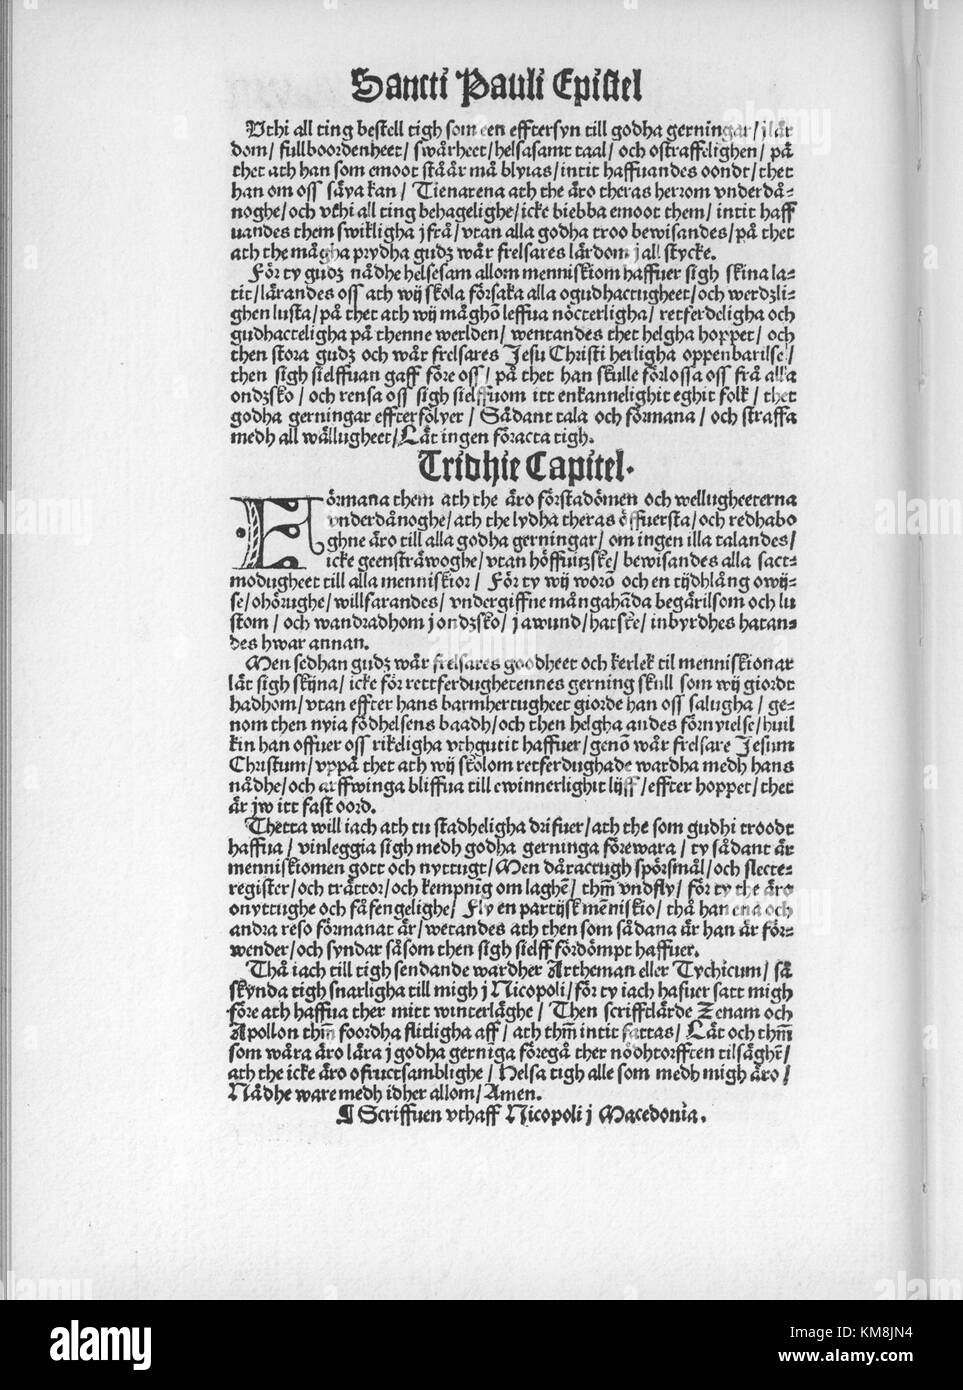 Sancti Pauli Epistel
Vthi all ting bestell tigh som een efftersyn till godha gerningar/ j lär
dom/ fullboordenheet/ swårheet/ helsasamt taal/ och ostraffelighen/ på
thet ath han som emoot står må blyias/ intit haffuandes oondt/ thet
han om oss säya kan/ Tienarena ath the äro theras herrom vnderdå⸗
noghe/ och vthi all ting behagelighe/ icke biebba emoot them/ intit haff
uandes them swikligha j frå/ vtan alla godha troo bewisandes/ på thet
ath the mågha prydha gudz wår frelsares lärdom j all stycke.
För ty gudz nådhe helsesam allom menniskiom haffuer sigh skina la⸗
tit/ lärandes oss ath wij skola försaka alla ogudhactugheet/ och werdzli⸗
ghen lusta/ på thet ath wij måghō leffua nöcterligha/ retferdeligha och
gudhacteligha på thenne werlden/ wentandes thet helgha hoppet/ och
then stora gudz och wår frelsares Jesu Christi herligha oppenbarilse/
then sigh sielffuan gaff före oss/ på thet han skulle förlossa oss frå alla
ondzsko/ och rensa oss sigh sielffuom itt enkannelighit eghit folk/ thet
godha gerningar effterfölyer/ Sådant tala och förmana/ och straffa
medh all wällugheet/ Låt ingen föracta tigh.
Tridhie Capitel.
Förmana them ath the äro förstadömen och wellugheeterna
vnderdånoghe/ ath the lydha theras öffuersta/ och redhabo
ghne äro till alla godha gerningar/ om ingen illa talandes/
icke geensträwoghe/ vtan höffuitzske/ bewisandes alla sact⸗
modugheet till alla menniskior/ För ty wij worō och en tijdhlång owij⸗
se/ ohörughe/ willfarandes/ vndergiffne mångahāda begärilsom och lu
stom/ och wandradhom j ondzsko/ j awund/ hatske/ inbyrdhes hatan⸗
des hwar annan.
Men sedhan gudz wår frelsares goodheet och kerlek til menniskionar
lät sigh skijna/ icke för rettferdughetennes gerning skull som wij giordt
hadhom/ vtan effter hans barmhertugheet giorde han oss salugha/ ge⸗
nom then nyia födhelsens baadh/ och then helgha andes förnyielse/ huil
kin han offuer oss rikeligha vthgutit haffuer/ genō wår frelsare Jesum
Christum/ vppå thet ath wij skolom retferdughade wardha medh hans
nådhe/ och arffwinga bliffua till ewinnerlighit lijff/ effter hoppet/ thet
är jw itt fast oord.
Thetta will iach ath tu stadheligha drifuer/ ath the som gudhi troodt
haffua/ vinleggia sigh medh godha gerninga förewara/ ty sådant är
menniskiomen gott och nyttugt/ Men dåractugh spörsmål/ och slecte⸗
register/ och trättor/ och kempnig om laghē/ thm̄ vndfly/ för ty the äro
onyttughe och fåfengelighe/ Fly en partijsk mēniskio/ thå han ena och
andra reso förmanat är/ wetandes ath then som sådana är han är för⸗
wender/ och syndar såsom then sigh sielff fördömpt haffuer.
Thå iach till tigh sendande wardher Artheman eller Tychicum/ så
skynda tigh snarligha till migh j Nicopoli/ för ty iach hafuer satt migh
före ath haffua ther mitt winterläghe/ Then scrifftlärde Zenam och
Apollon thm̄ foordha flitligha aff/ ath thm̄ intit fattas/ Låt och thm̄
som wåra äro lära j godha gernīga föregå ther nödhtorfften tilsäghē/
ath the icke äro ofructsamblighe/ Helsa tigh alle som medh migh äro/
Nådhe ware medh idher allom/ Amen.
¶ Scriffuen vthaff Nicopoli j Macedonia.
alamy
KM8JN4
www.alamy.com